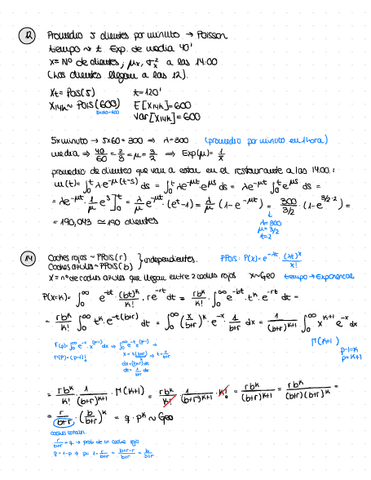 12 Promedio 5 clientes por minuto → Poisson
tiempo ~ t Exp. de media 40'
X = Nº de clientes ; μx, σx² a las 14:00
(Los clientes llegan a las 12).
Xt = Pois(5) t = 120'
X14h ~ Pois(600) E[X14h] = 600
5·120 = 600 Var[X14h] = 600
5x minuto → 5x60 = 300 → λ = 300 (promedio por minuto en 1 hora)
media ⇒ 40/60 = 2/3 = μ = 3/2 ⇒ Exp(μ) = 1/λ
promedio de clientes que va a estar en el restaurante a las 14:00:
m(t) = ∫₀ᵗ λe^-μ(t-s) ds = ∫₀ᵗ λe^-μt e^μs ds = λe^-μt ∫₀ᵗ e^μs ds =
= λe^-μt · 1/μ e^s ]₀ᵗ = λ/μ e^-μt · (e^t - 1) = λ/μ (1 - e^-μt) = 300/(3/2) · (1 - e^-3/2·2) =
= 190,043 ≈ 190 clientes
λ = 300
μ = 3/2
t = 2
14 Coches rojos ~ PPois(r) } independientes.
Coches azules ~ PPois(b)
PPois: P(x) = e^-λt (λt)^x / x!
X = nº de coches azules que llegan entre 2 coches rojos X ~ Geo tiempo → Exponencial
P(X=k) = ∫₀^∞ e^-bt (bt)^k / k! · re^-rt dt = rb^k / k! · ∫₀^∞ e^-bt · t^k · e^-rt dt =
= rb^k / k! ∫₀^∞ t^k · e^-t(b+r) dt = ∫₀^∞ (x/(b+r))^k · e^-x · 1/(b+r) dx = 1/(b+r)^k+1 ∫₀^∞ x^k+1 e^-x dx
Γ(k+1)
Γ(p) = ∫₀^∞ e^-x · x^(p-1) dx ⇒ ∫₀^∞ e^-x
Γ(p) = (p-1)!
x = t(b+r) ⇒ t = x/(b+r)
p-1 = k
p = k+1
= rb^k / k! · 1/(b+r)^k+1 · Γ(k+1) = rb^k / k! · 1/(b+r)^k+1 · k! = rb^k / (b+r)^k+1 = rb^k / (b+r)(b+r)^k =
= r/(b+r) · (b/(b+r))^k = q · p^k ~ Geo
r/(b+r) = q → prob de un coche rojo